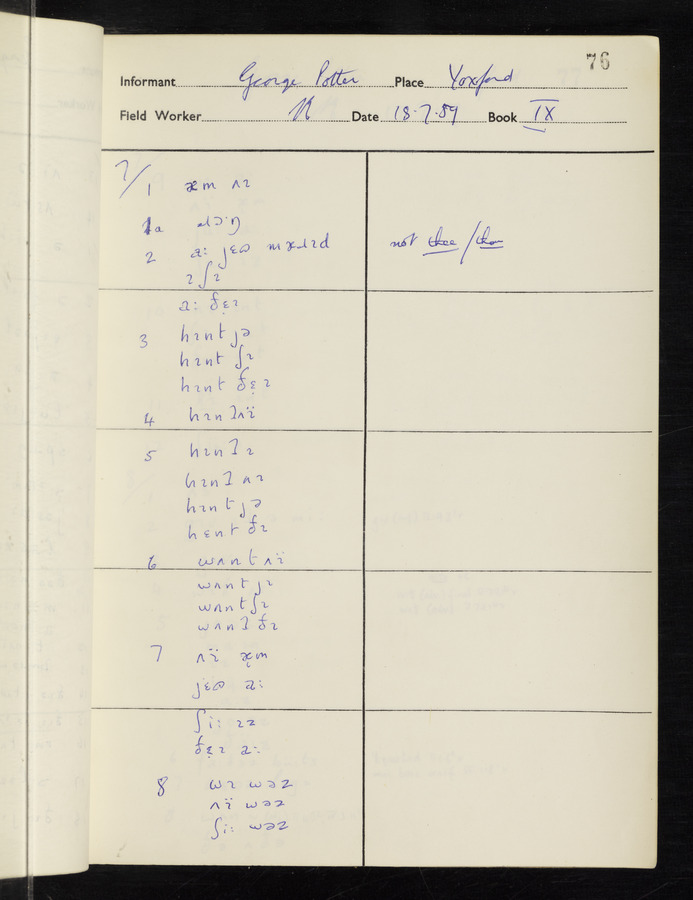 76
Informant George Potter Place Yoxford
Field Worker Date 18.7.59 Book IX
7/1 æm ʌɪ
1a
2 a: jɛɷ mæɹɪd not thee/thou
ɪ ʃɪ
a: ðɛɪ
3 hɪnt jə
hɪnt ʃɪ
hɪnt ðɛɪ
4 hɪnʔʌï
5 hɪnʔɪ
hɪnʔ ʌɪ
hɪnt jə
hɛnt ðɪ
6 wʌnt ʌï
wʌnt jɪ
wʌnt ʃɪ
wʌnʔ ðɪ
7 ʌï æm
jɛɷ a:
ʃi: ɪz
ðɛɪ a:
8 wɪ wəz
ʌï wəz
ʃi: wəz